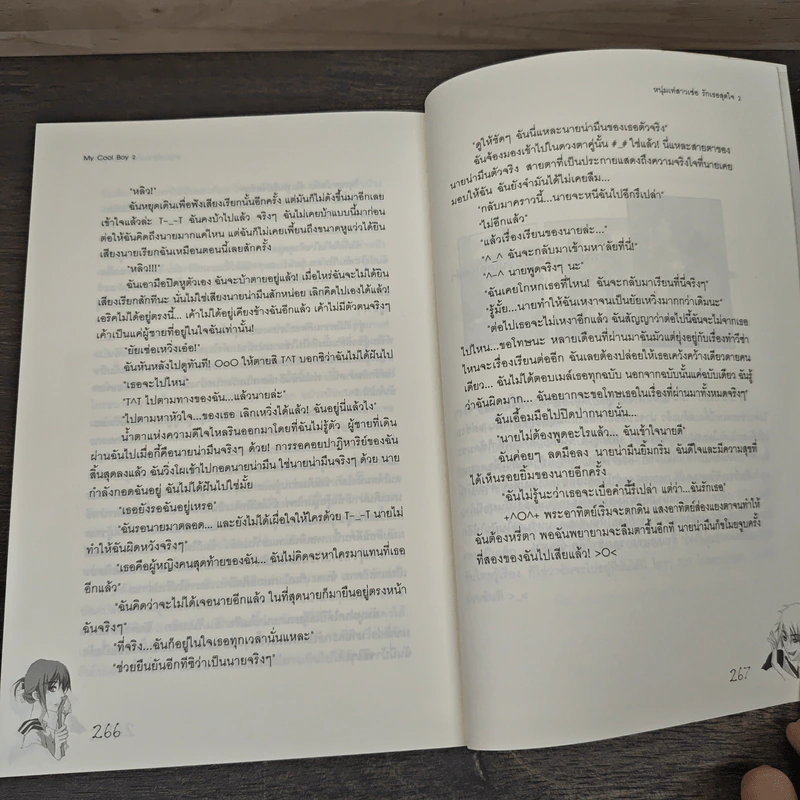 My Cool Boy 2
"หลิว!"
ฉันหยุดเดินเพื่อฟังเสียงเรียกนั้นอีกครั้ง แต่มันก็ไม่ดังขึ้นมาอีกเลย
เข้าใจแล้วล่ะ T-_-T ฉันคงบ้าไปแล้ว จริงๆ ฉันไม่เคยบ้าแบบนี้มาก่อน
ต่อให้ฉันคิดถึงนายมากแค่ไหน แต่ฉันก็ไม่เคยเพี้ยนถึงขนาดหูแว่วได้ยิน
เสียงนายเรียกฉันเหมือนตอนนี้เลยสักครั้ง
"หลิว!!!"
ฉันเอามือปิดหูตัวเอง ฉันจะบ้าตายอยู่แล้ว! เมื่อไหร่ฉันจะไม่ได้ยิน
เสียงเรียกสักทีนะ นั่นไม่ใช่เสียงนายน่ามึนสักหน่อย เลิกคิดไปเองได้แล้ว!
เอริคไม่ได้อยู่ตรงนี้... เค้าไม่ได้อยู่เคียงข้างฉันอีกแล้ว เค้าไม่มีตัวตนจริงๆ
เค้าเป็นแค่ผู้ชายที่อยู่ในใจฉันเท่านั้น!
"ยัยเซ่อเหวิ่งเอ๋อ!"
ฉันหันหลังไปดูทันที! OoO ให้ตายสิ T^T บอกซิว่าฉันไม่ได้ฝันไป
"เธอจะไปไหน"
"T^T ไปตามทางของฉัน...แล้วนายล่ะ"
"ไปตามหาหัวใจ...ของเธอ เลิกเหวิ่งได้แล้ว! ฉันอยู่นี่แล้วไง"
น้ำตาแห่งความดีใจไหลรินออกมาโดยที่ฉันไม่รู้ตัว ผู้ชายที่เดิน
ผ่านฉันไปเมื่อกี้คือนายน่ามึนจริงๆ ด้วย! การรอคอยปาฏิหาริย์ของฉัน
สิ้นสุดลงแล้ว ฉันวิ่งโผเข้าไปกอดนายน่ามึน ใช่นายน่ามึนจริงๆ ด้วย นาย
กำลังกอดฉันอยู่ ฉันไม่ได้ฝันไปใช่มั้ย
"เธอยังรอฉันอยู่เหรอ"
"ฉันรอนายมาตลอด... และยังไม่ได้เผื่อใจให้ใครด้วย T-_-T นายไม่
ทำให้ฉันผิดหวังจริงๆ"
"เธอคือผู้หญิงคนสุดท้ายของฉัน... ฉันไม่คิดจะหาใครมาแทนที่เธอ
อีกแล้ว"
"ฉันคิดว่าจะไม่ได้เจอนายอีกแล้ว ในที่สุดนายก็มายืนอยู่ตรงหน้า
ฉันจริงๆ"
"ที่จริง...ฉันก็อยู่ในใจเธอทุกเวลานั่นแหละ"
"ช่วยยืนยันอีกทีซิว่าเป็นนายจริงๆ"
266
หนุ่มเท่สาวเซ่อ รักเธอสุดใจ 2
"ดูให้ชัดๆ ฉันนี่แหละนายน่ามึนของเธอตัวจริง"
ฉันจ้องมองเข้าไปในดวงตาคู่นั้น #_# ใช่แล้ว! นี่แหละสายตาของ
นายน่ามึนตัวจริง สายตาที่เป็นประกายแสดงถึงความจริงใจที่นายเคย
มอบให้ฉัน ฉันยังจำมันได้ไม่เคยลืม...
"กลับมาคราวนี้...นายจะหนีฉันไปอีกรึเปล่า"
"ไม่อีกแล้ว"
"แล้วเรื่องเรียนของนายล่ะ..."
"^_^ ฉันจะกลับมาเข้ามหา'ลัยที่นี่!"
"^-^ นายพูดจริงๆ นะ"
"ฉันเคยโกหกเธอที่ไหน! ฉันจะกลับมาเรียนที่นี่จริงๆ"
"รู้มั้ย...นายทำให้ฉันเหงาจนเป็นยัยเหวิ่งมากกว่าเดิมนะ"
"ต่อไปเธอจะไม่เหงาอีกแล้ว ฉันสัญญาว่าต่อไปนี้ฉันจะไม่จากเธอ
ไปไหน...ขอโทษนะ หลายเดือนที่ผ่านมาฉันมัวแต่ยุ่งอยู่กับเรื่องทำวีซ่า
ไหนจะเรื่องเรียนต่ออีก ฉันเลยต้องปล่อยให้เธอเคว้งคว้างเดียวดายคน
เดียว... ฉันไม่ได้ตอบเมล์เธอทุกฉบับ นอกจากฉบับนั้นแค่ฉบับเดียว ฉันรู้
ว่าฉันผิดมาก... ฉันอยากจะขอโทษเธอในเรื่องที่ผ่านมาทั้งหมดจริงๆ"
ฉันเอื้อมมือไปปิดปากนายนั่น...
"นายไม่ต้องพูดอะไรแล้ว... ฉันเข้าใจนายดี"
ฉันค่อยๆ ลดมือลง นายน่ามึนยิ้มกริ่ม ฉันดีใจและมีความสุขที่
ได้เห็นรอยยิ้มของนายอีกครั้ง
"ฉันไม่รู้นะว่าเธอจะเบื่อคำนี้รึเปล่า แต่ว่า...ฉันรักเธอ"
+^O^+ พระอาทิตย์เริ่มจะตกดิน แสงอาทิตย์ส่องแยงตาจนทำให้
ฉันต้องหรี่ตา พอฉันพยายามจะลืมตาขึ้นอีกที นายน่ามึนก็ขโมยจูบครั้ง
ที่สองของฉันไปเสียแล้ว! >O<
267